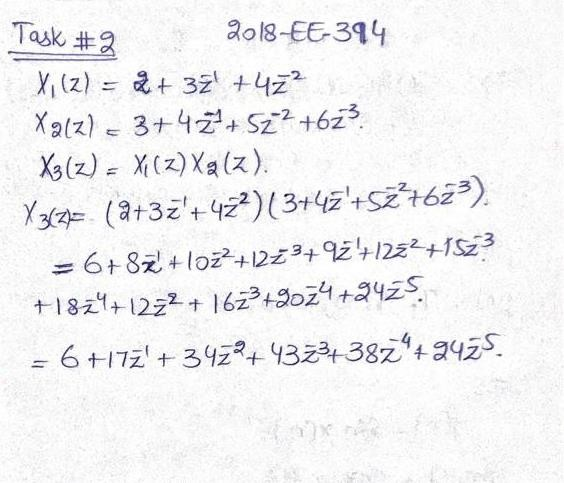 Task #2 2018-EE-394
X₁(z) = 2 + 3z⁻¹ + 4z⁻²
X₂(z) = 3 + 4z⁻¹ + 5z⁻² + 6z⁻³.
X₃(z) = X₁(z) X₂(z).
X₃(z) = (2+3z⁻¹+4z⁻²)(3+4z⁻¹+5z⁻²+6z⁻³).
= 6 + 8z⁻¹ + 10z⁻² + 12z⁻³ + 9z⁻¹ + 12z⁻² + 15z⁻³
+ 18z⁻⁴ + 12z⁻² + 16z⁻³ + 20z⁻⁴ + 24z⁻⁵.
= 6 + 17z⁻¹ + 34z⁻² + 43z⁻³ + 38z⁻⁴ + 24z⁻⁵.